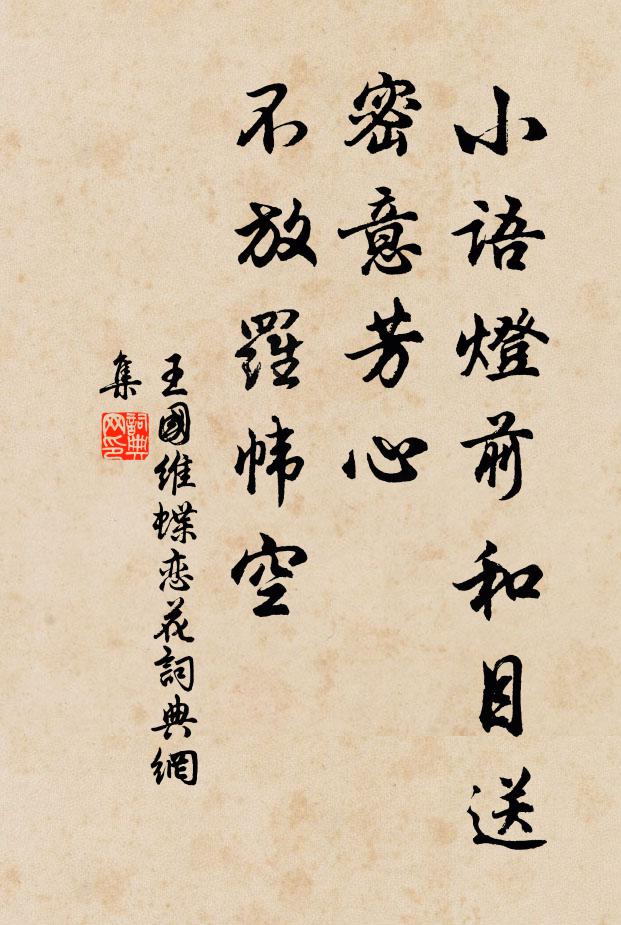 小語燈前和目送
密意芳心
不放羅幃空
王國維蝶恋花詞典網
集
詞典网印